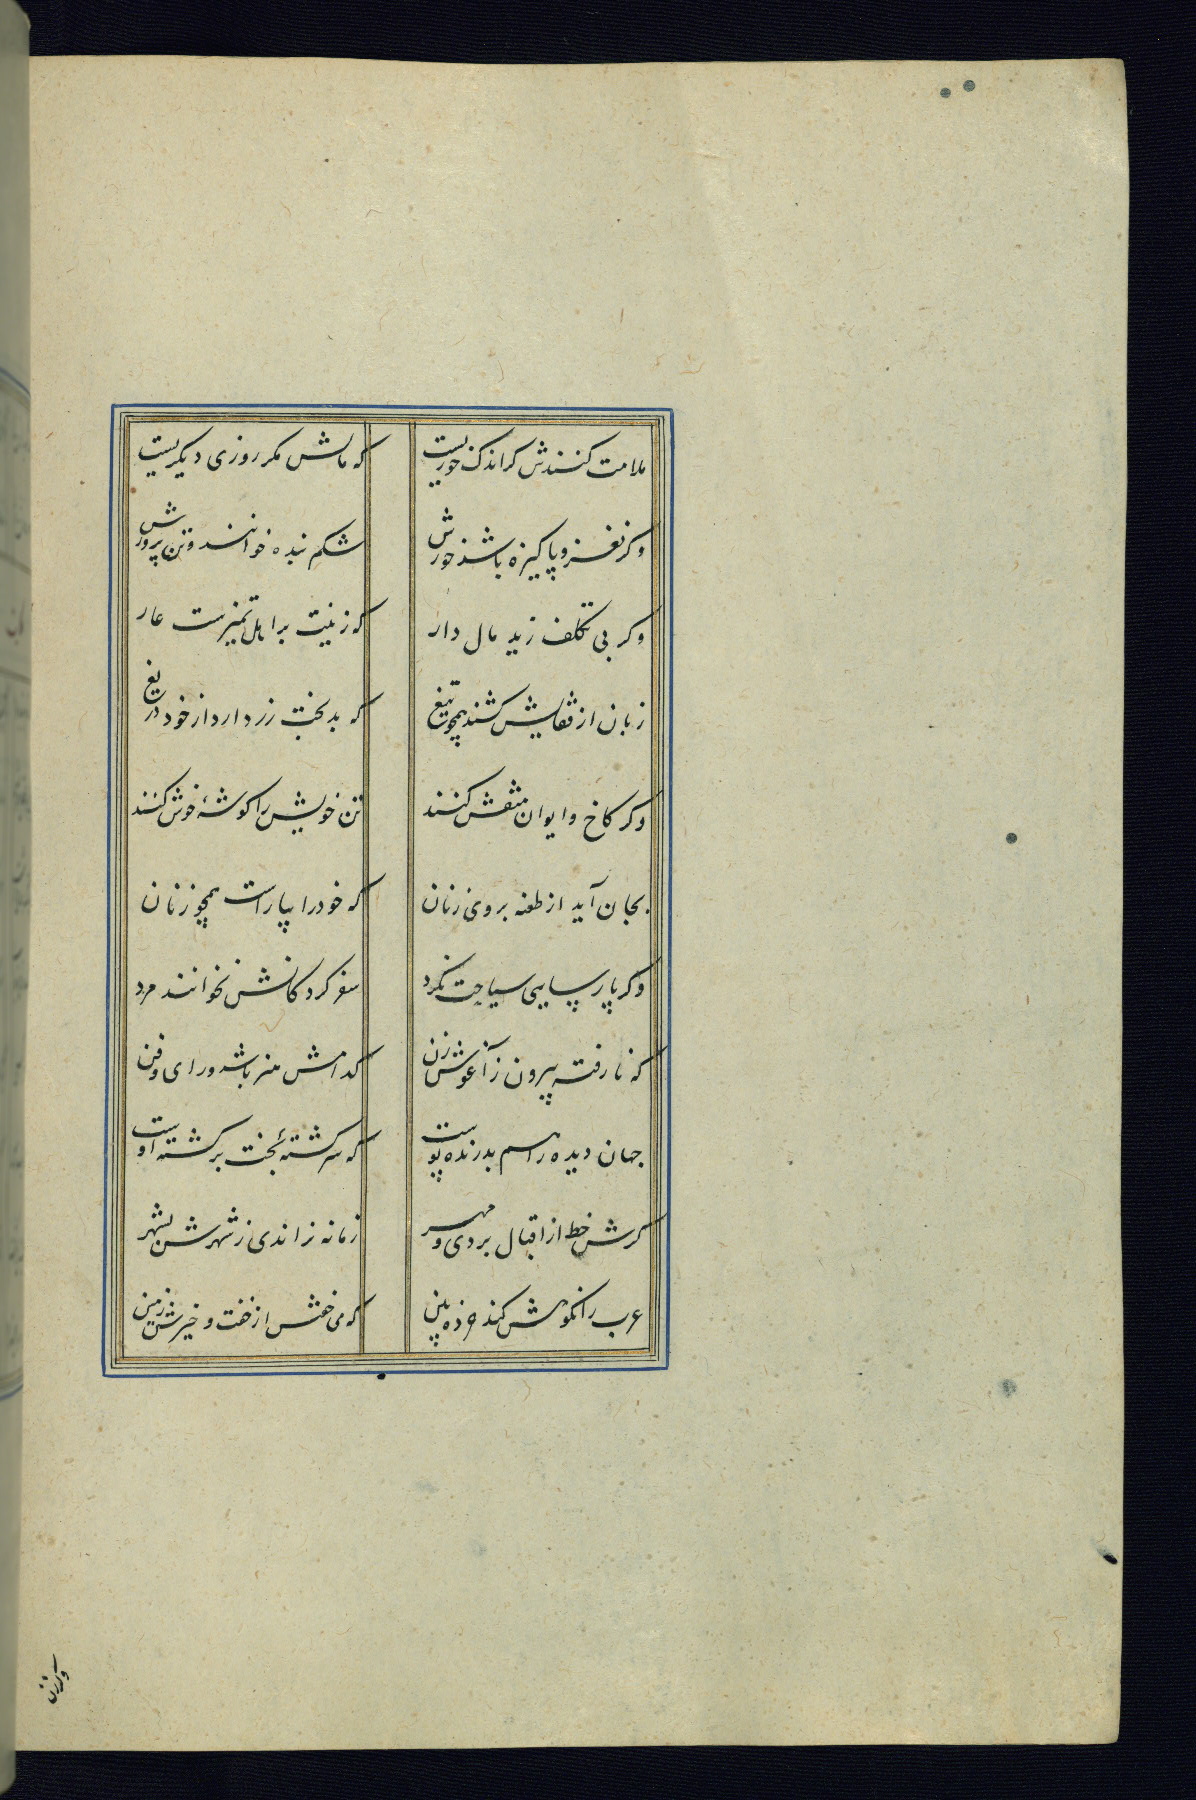 ملامت کنندش کر اندک خوریست که مالش مکر روزی دیکریست
وکر نغز و پاکیزه باشد خورش شکم بنده خوانند و تن پرورش
وکر بی تکلف زید مال دار که زینت بر اهل تمیزست عار
زبان از قفایش کشند همچو تیغ که بدبخت زر دارد از خود دریغ
وکر کاخ و ایوان منقش کنند تن خویش را کوشهٔ خوش کنند
بجان آید از طعنه بر وی زنان که خود را بیاراست همچو زنان
وکر پارسایی سیاحت نکرد سفر کردکانش نخوانند مرد
که نارفته بیرون ز آغوش زن کدامش هنر باشد و رای و فن
جهان دیده را هم بدرند پوست که سرکشتهٔ بخت برکشته اوست
کرش حظ از اقبال بودی و بهر زمانه نراندی ز شهرش بشهر
عرب را نکوهش کند خرده بین که می خفتش از خفت و خیزش زمین
وکر زن